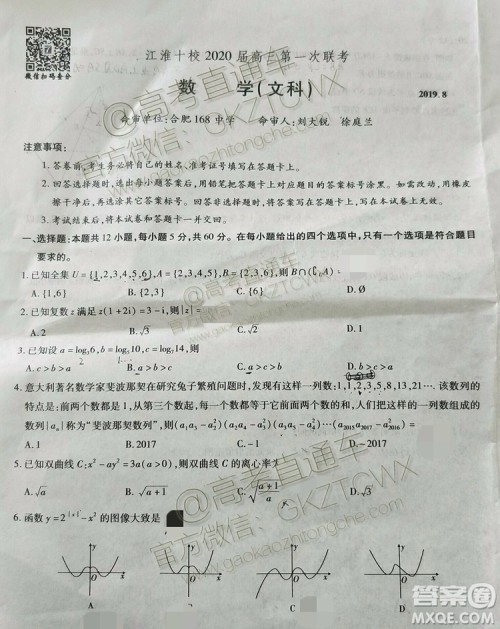 微信扫码查分
江淮十校2020届高三第一次联考
数 学(文科)
2019.8
命审单位:合肥168中学 命审人:刘大锐 徐庭兰
注意事项:
1.答卷前,考生务必将自己的姓名、准考证号填写在答题卡上。
2.回答选择题时,选出每小题答案后,用铅笔把答题卡上对应题目的答案标号涂黑。如需改动,用橡皮
擦干净后,再选涂其它答案标号。回答非选择题时,将答案写在答题卡上,写在本试卷上无效。
3.考试结束后,将本试卷和答题卡一并交回。
一、选择题:本题共12小题,每小题5分,共60分。在每小题给出的四个选项中,只有一项是符合题目
要求的。
1.已知全集U={1,2,3,4,5,6},A={2,3,4,5},B={2,3,5},则B∩(∁ᵤA)
A.{1,6} B.{2,3} C.{6} D.∅
2.已知复数z满足z(1+2i)=3-i,则|z|=
A.2 B.√3 C.√2 D.1
3.已知设a=log₃6,b=log₅10,c=log₇14,则
A.c>b>a B.b>c>a C.a>c>b D.a>b>c
4.意大利著名数学家斐波那契在研究兔子繁殖问题时,发现有这样一列数:1,1,2,3,5,8,13,…该数列的
特点是:前两个数都是1,从第三个数起,每一个数都等于它前面两个数的和,人们把这样的一列数组成的
数列{aₙ}称为“斐波那契数列”,则(a₁a₃-a₂²)(a₂a₄-a₃²)(a₃a₅-a₄²)…(a₂₀₁₅a₂₀₁₇-a₂₀₁₆²)=
A.1 B.2017 C.-1 D.-2017
5.已知双曲线C:x²-ay²=3a(a>0),则双曲线C的离心率为
A.√a B.√(a+1) C.√((a+1)/a) D.
6.函数y=2^|x|-x²的图像大致是
y x O
y x O
y x O
y x O
A B C D
@高考直通车
官方微信:GKZTCWX
www.gaokaozhitongche.com
答案圈
MXQE.COM